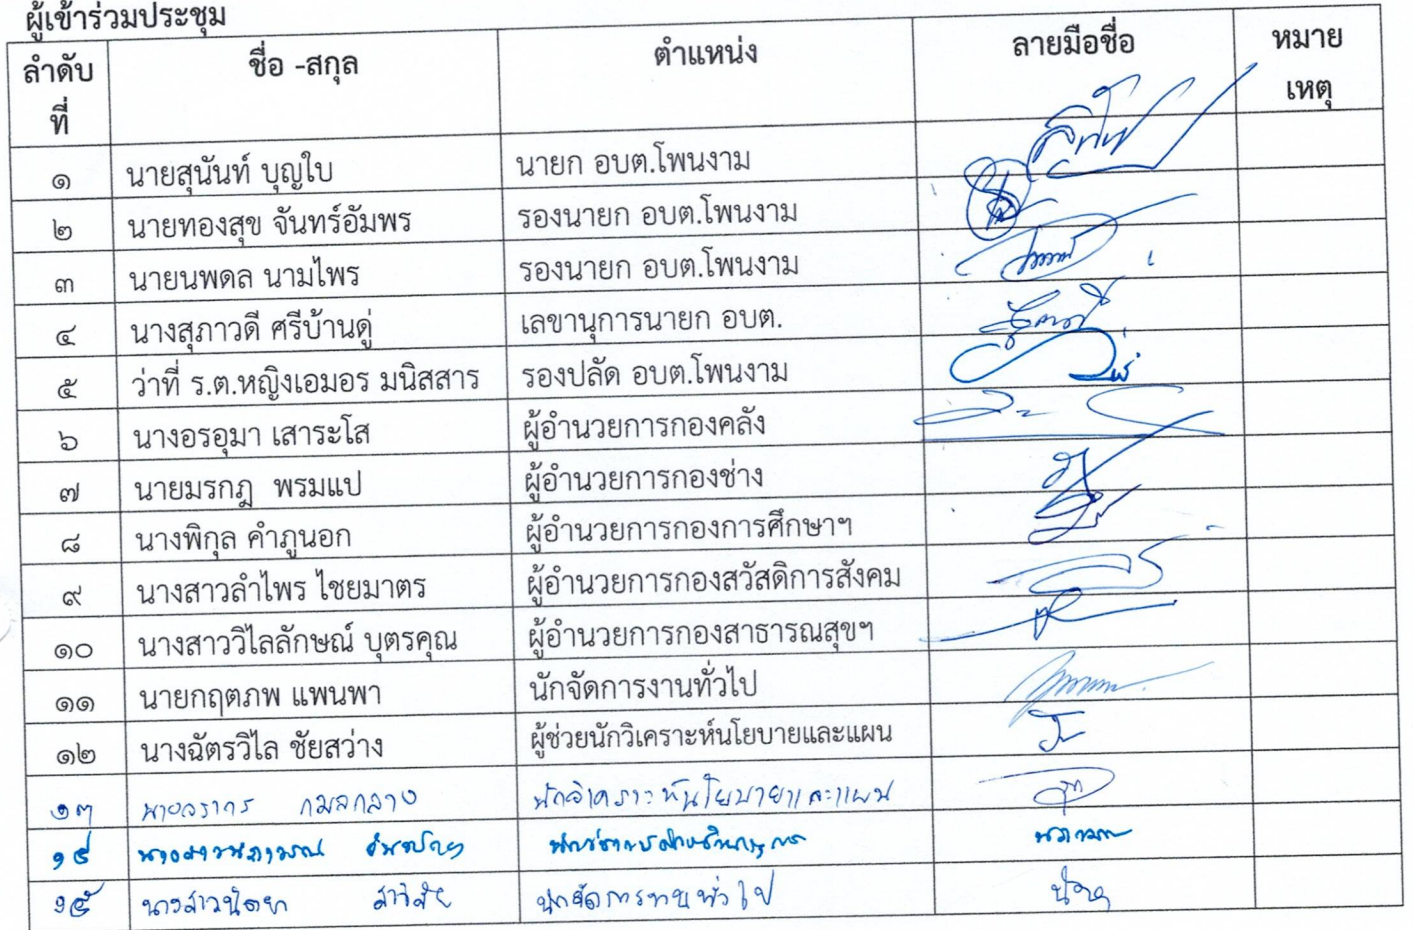 ผู้เข้าร่วมประชุม
ลำดับที่ ชื่อ -สกุล ตำแหน่ง ลายมือชื่อ หมายเหตุ
๑ นายสุนันท์ บุญใบ นายก อบต.โพนงาม
๒ นายทองสุข จันทร์อัมพร รองนายก อบต.โพนงาม
๓ นายนพดล นามไพร รองนายก อบต.โพนงาม
๔ นางสุภาวดี ศรีบ้านดู่ เลขานุการนายก อบต.
๕ ว่าที่ ร.ต.หญิงเอมอร มนิสสาร รองปลัด อบต.โพนงาม
๖ นางอรอุมา เสาระโส ผู้อำนวยการกองคลัง
๗ นายมรกฎ พรมแป ผู้อำนวยการกองช่าง
๘ นางพิกุล คำภูนอก ผู้อำนวยการกองการศึกษาฯ
๙ นางสาวลำไพร ไชยมาตร ผู้อำนวยการกองสวัสดิการสังคม
๑๐ นางสาววิไลลักษณ์ บุตรคุณ ผู้อำนวยการกองสาธารณสุขฯ
๑๑ นายกฤตภพ แพนพา นักจัดการงานทั่วไป
๑๒ นางฉัตรวิไล ชัยสว่าง ผู้ช่วยนักวิเคราะห์นโยบายและแผน
๑๓ กมลกลาง นักวิเคราะห์นโยบายและแผน
๑๔
๑๕ นางสาวนิตยา นักจัดการงานทั่วไป